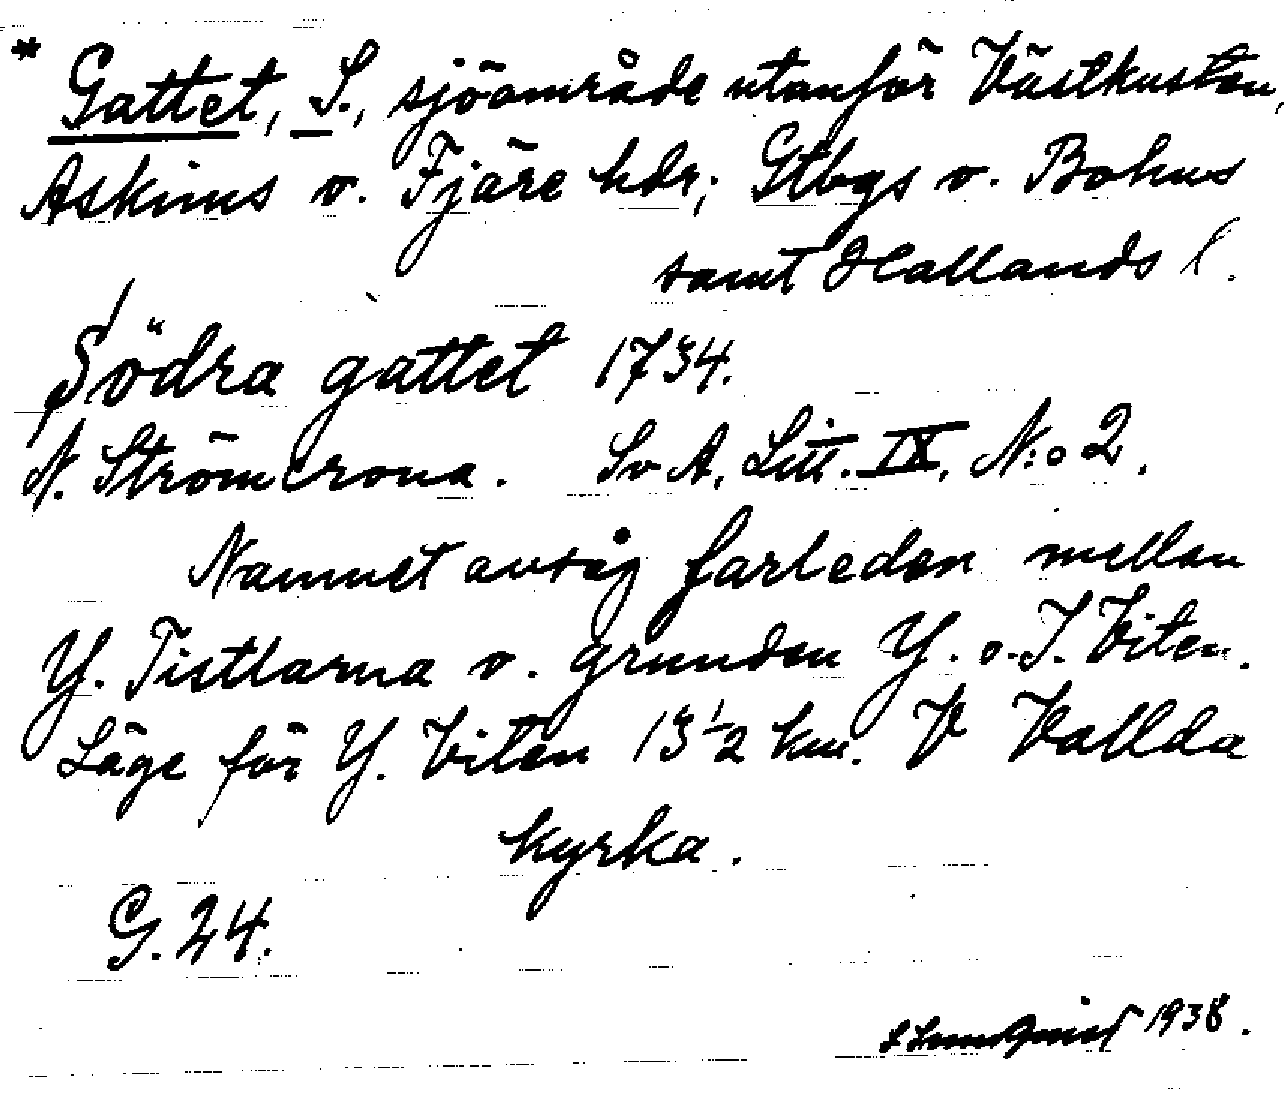 * Gattet, S., sjöområde utanför Västkusten,
Askims o. Fjäre hdr; Gtbgs o. Bohus
samt Hallands l.
Södra gattet 1734.
N. Strömcrona. Sv A, Litt. IX, N:o 2.
Namnet avsåg farleden mellan
Y. Tistlarna o. grunden Y. o. I. Viten.
Läge för Y. Viten 13 1/2 km. V Vallda
kyrka.
G. 24.
S Lundquist 1938.